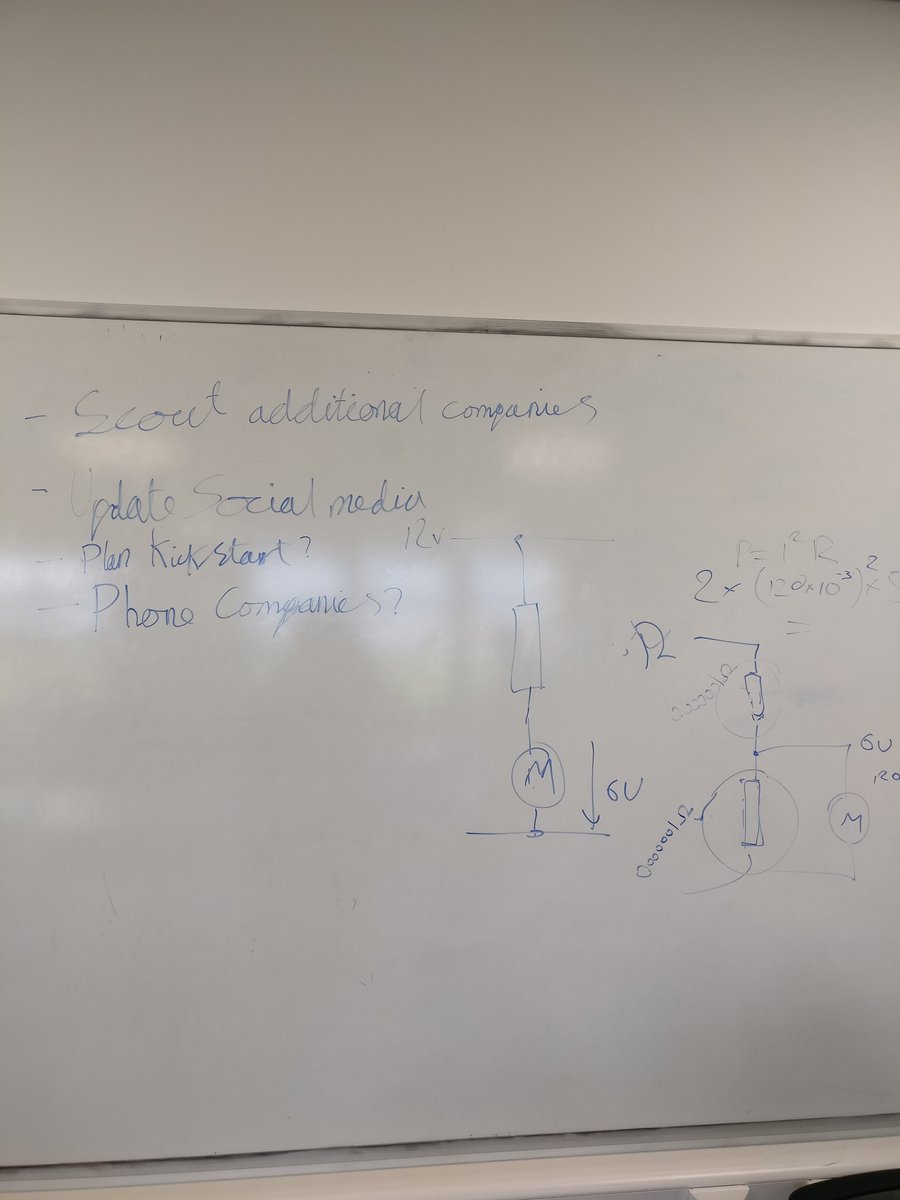 - Scout additional companies
- Update Social media
- Plan Kick Start?
- Phone Companies?
12v
M
6V
P = I² R
2 × (120×10⁻³)² × 5
=
12
000001Ω
6V
120
M
0000001Ω